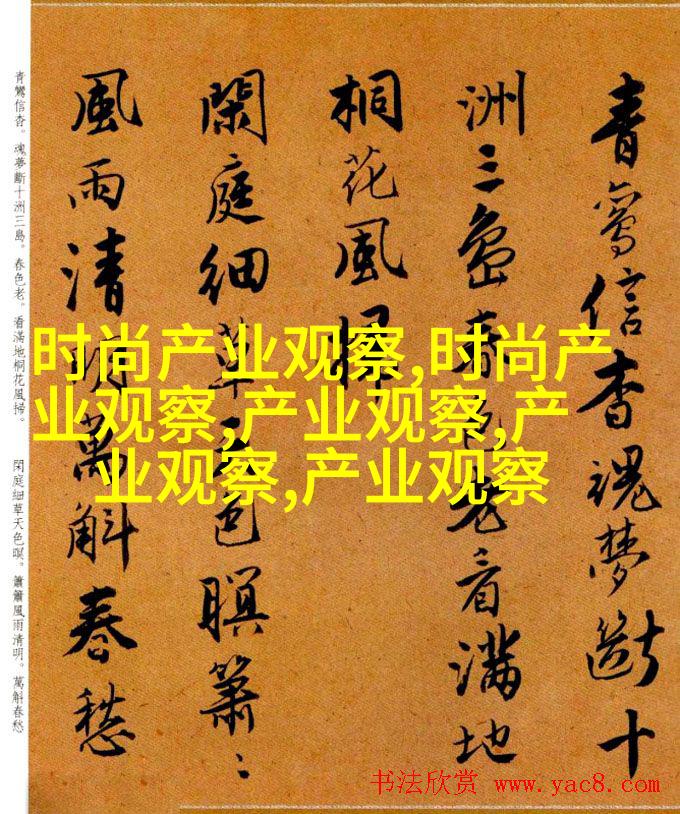 青鸞信杳魂夢斷十
洲三島春色老看滿地
桐花風掃
閑庭細草天色暝簫〻
風雨清明萬斛春愁
青鸞信杳。魂夢斷十洲三島。春色老。看滿地桐花風掃。 閑庭細草天色暝。簫簫風雨清明。萬斛春愁
时尚产业观察,时尚产
业观察,产业观察,产
业观察,产业观察
书法欣赏 www.yac8.com